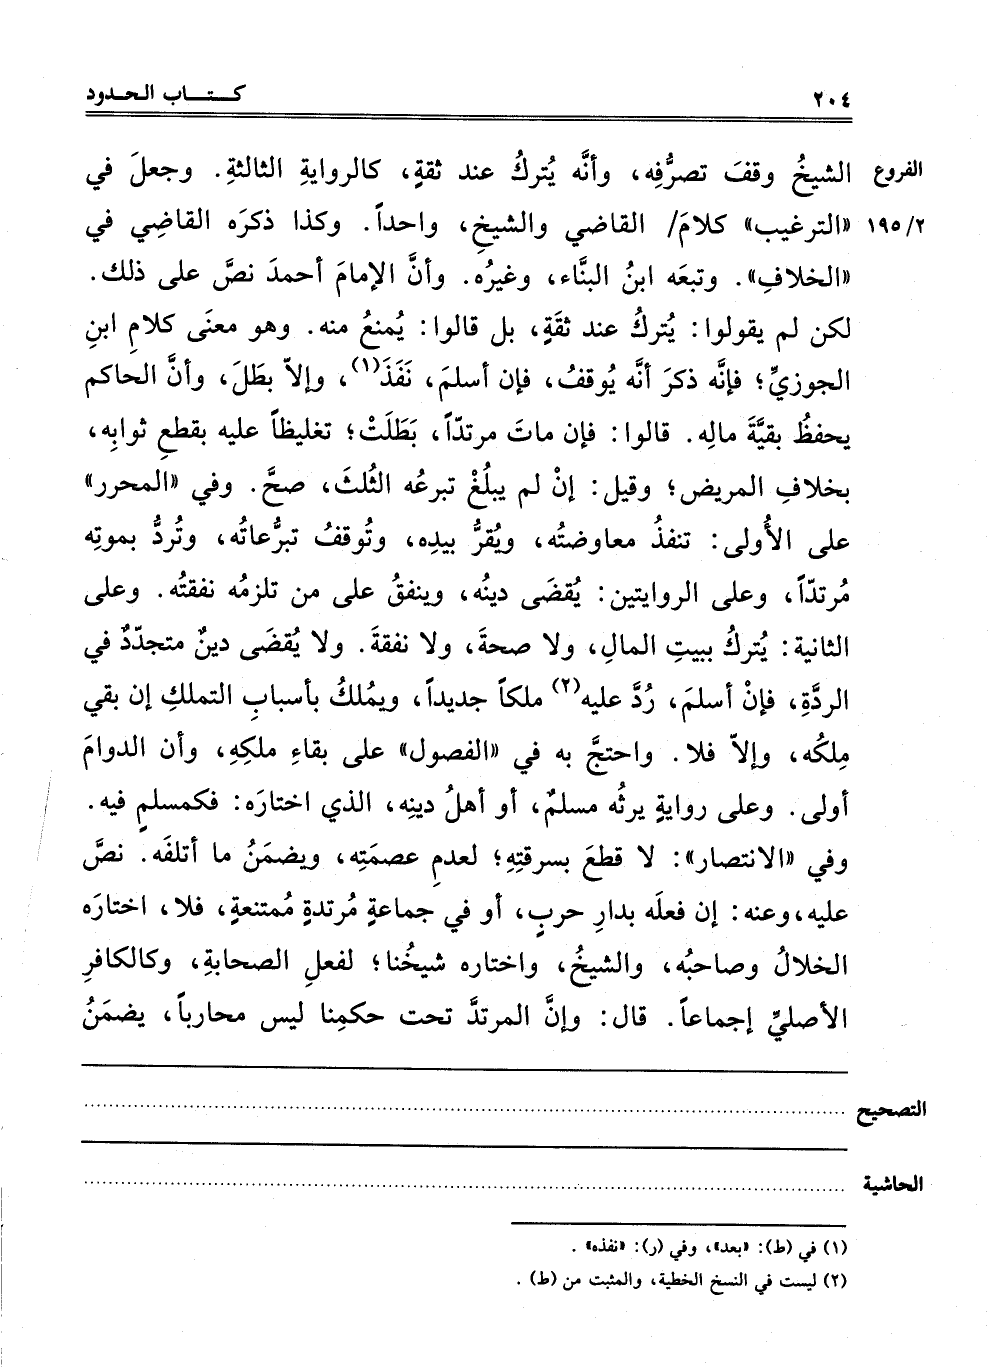 ٢٠٤ كـتـــاب الـحـدود
الفروع الشيخُ وقفَ تصرُّفِه، وأنَّه يُتركُ عند ثقةٍ، كالروايةِ الثالثةِ. وجعلَ في
١٩٥/٢ «الترغيب» كلامَ/ القاضي والشيخِ، واحداً. وكذا ذكرَه القاضِي في
«الخلافِ». وتبعَه ابنُ البنَّاء، وغيرُه. وأنَّ الإمامَ أحمدَ نصَّ على ذلك.
لكن لم يقولوا: يُتركُ عند ثقَةٍ، بل قالوا: يُمنعُ منه. وهو معنَى كلامِ ابنِ
الجوزيِّ؛ فإنَّه ذكرَ أنَّه يُوقفُ، فإن أسلمَ، نَفَذَ(١)، وإلاّ بطَلَ، وأنَّ الحاكم
يحفظُ بقيَّةَ مالِه. قالوا: فإن ماتَ مرتدّاً، بَطَلَتْ؛ تغليظاً عليه بقطعِ ثوابِه،
بخلافِ المريض؛ وقيل: إنْ لم يبلُغْ تبرعُه الثُلثَ، صحَّ. وفي «المحرر»
على الأُولى: تنفذُ معاوضتُه، ويُقرُّ بيدِه، وتُوقفُ تبرُّعاتُه، وتُردُّ بموتِه
مُرتدّاً، وعلى الروايتين: يُقضَى دينُه، وينفقُ على من تلزمُه نفقتُه. وعلى
الثانية: يُتركُ ببيتِ المالِ، ولا صحةَ، ولا نفقةَ. ولا يُقضَى دينٌ متجدّدٌ في
الردَّةِ، فإنْ أسلمَ، رُدَّ عليه(٢) ملكاً جديداً، ويمُلكُ بأسبابِ التملكِ إن بقي
مِلكُه، وإلاّ فلا. واحتجَّ به في «الفصول» على بقاءِ ملكِهِ، وأن الدوامَ
أولى. وعلى روايةٍ يرثُه مسلمٌ، أو أهلُ دينِه، الذي اختارَه: فكمسلمٍ فيه.
وفي «الانتصار»: لا قطعَ بسرقتِهِ؛ لعدمِ عصمَتِه، ويضمَنُ ما أتلفَه. نصَّ
عليه، وعنه: إن فعلَه بدارِ حربٍ، أو في جماعةٍ مُرتدةٍ مُمتنعةٍ، فلا، اختارَه
الخلالُ وصاحبُه، والشيخُ، واختاره شيخُنا؛ لفعلِ الصحابةِ، وكالكافرِ
الأصليِّ إجماعاً. قال: وإنَّ المرتدَّ تحت حكمِنا ليس محارباً، يضمَنُ
التصحيح
الحاشية
(١) في (ط): «بعد»، وفي (ر): «نفذه» .
(٢) ليست في النسخ الخطية، والمثبت من (ط) .